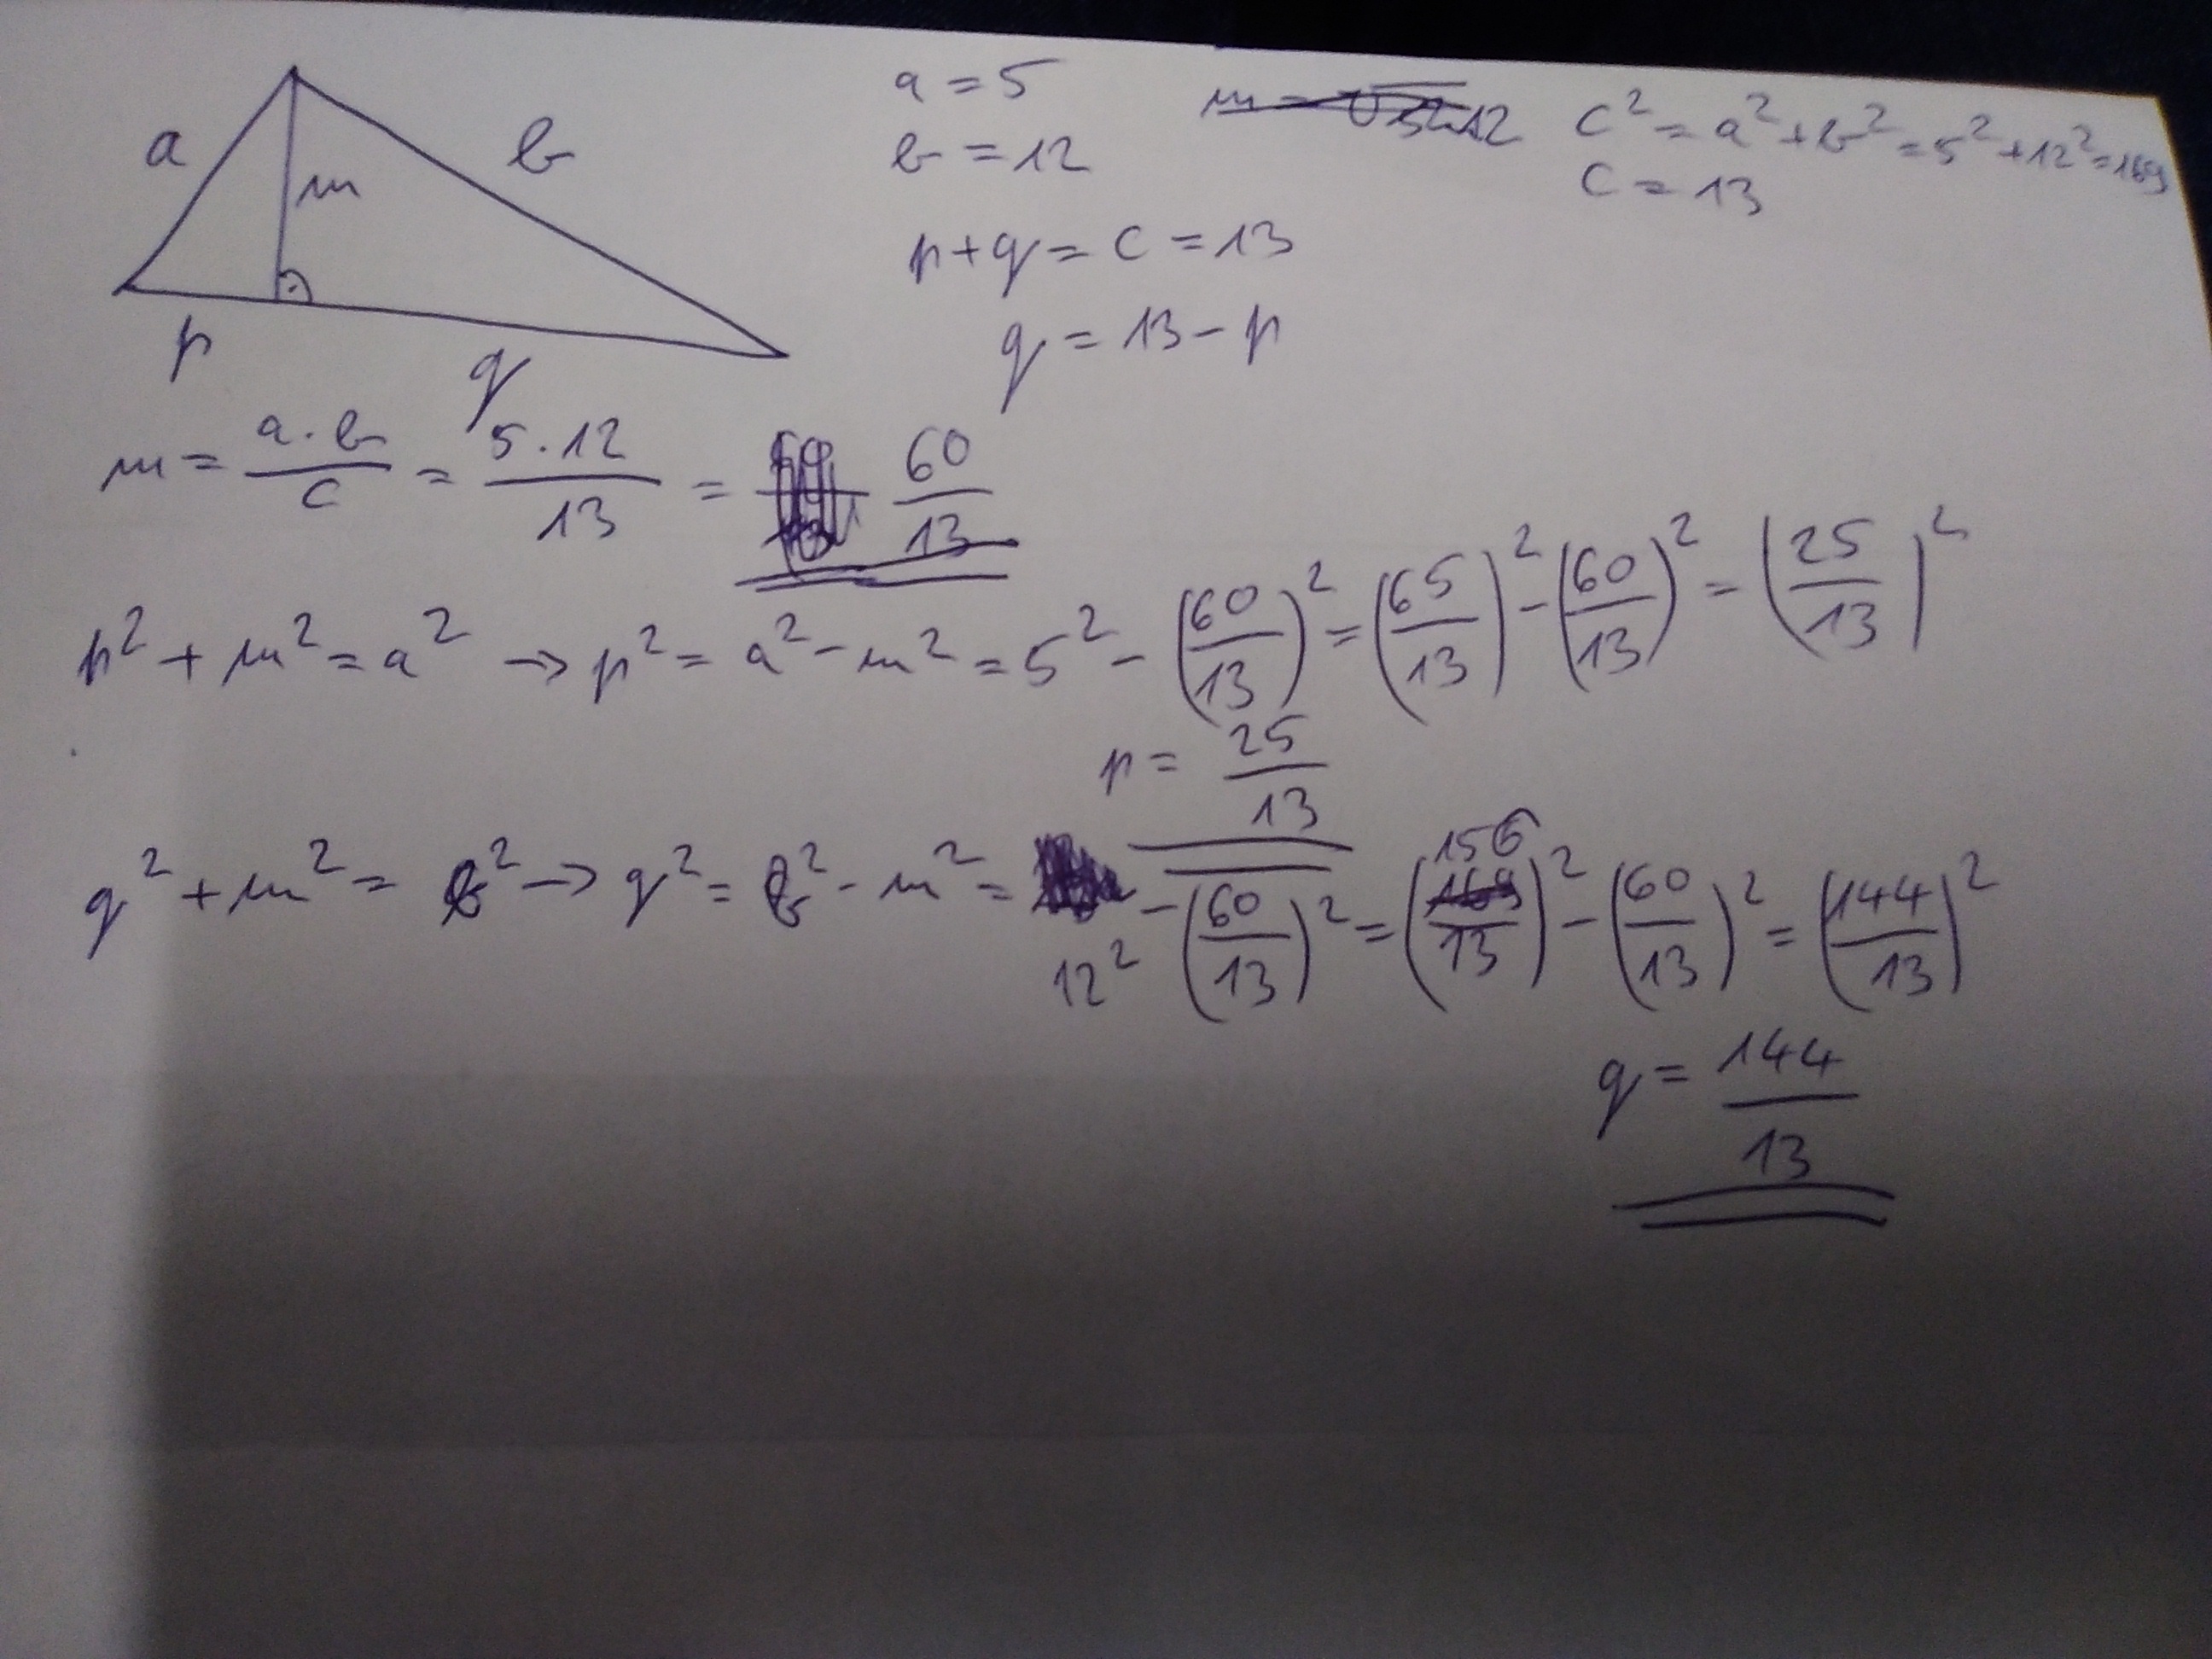 a
b
m
p
q
a = 5
b = 12
c² = a² + b² = 5² + 12² = 169
c = 13
p + q = c = 13
q = 13 - p
m = a · b / c = 5 · 12 / 13 = 60/13
p² + m² = a² → p² = a² - m² = 5² - (60/13)² = (65/13)² - (60/13)² = (25/13)²
p = 25/13
q² + m² = b² → q² = b² - m² = 12² - (60/13)² = (156/13)² - (60/13)² = (144/13)²
q = 144/13